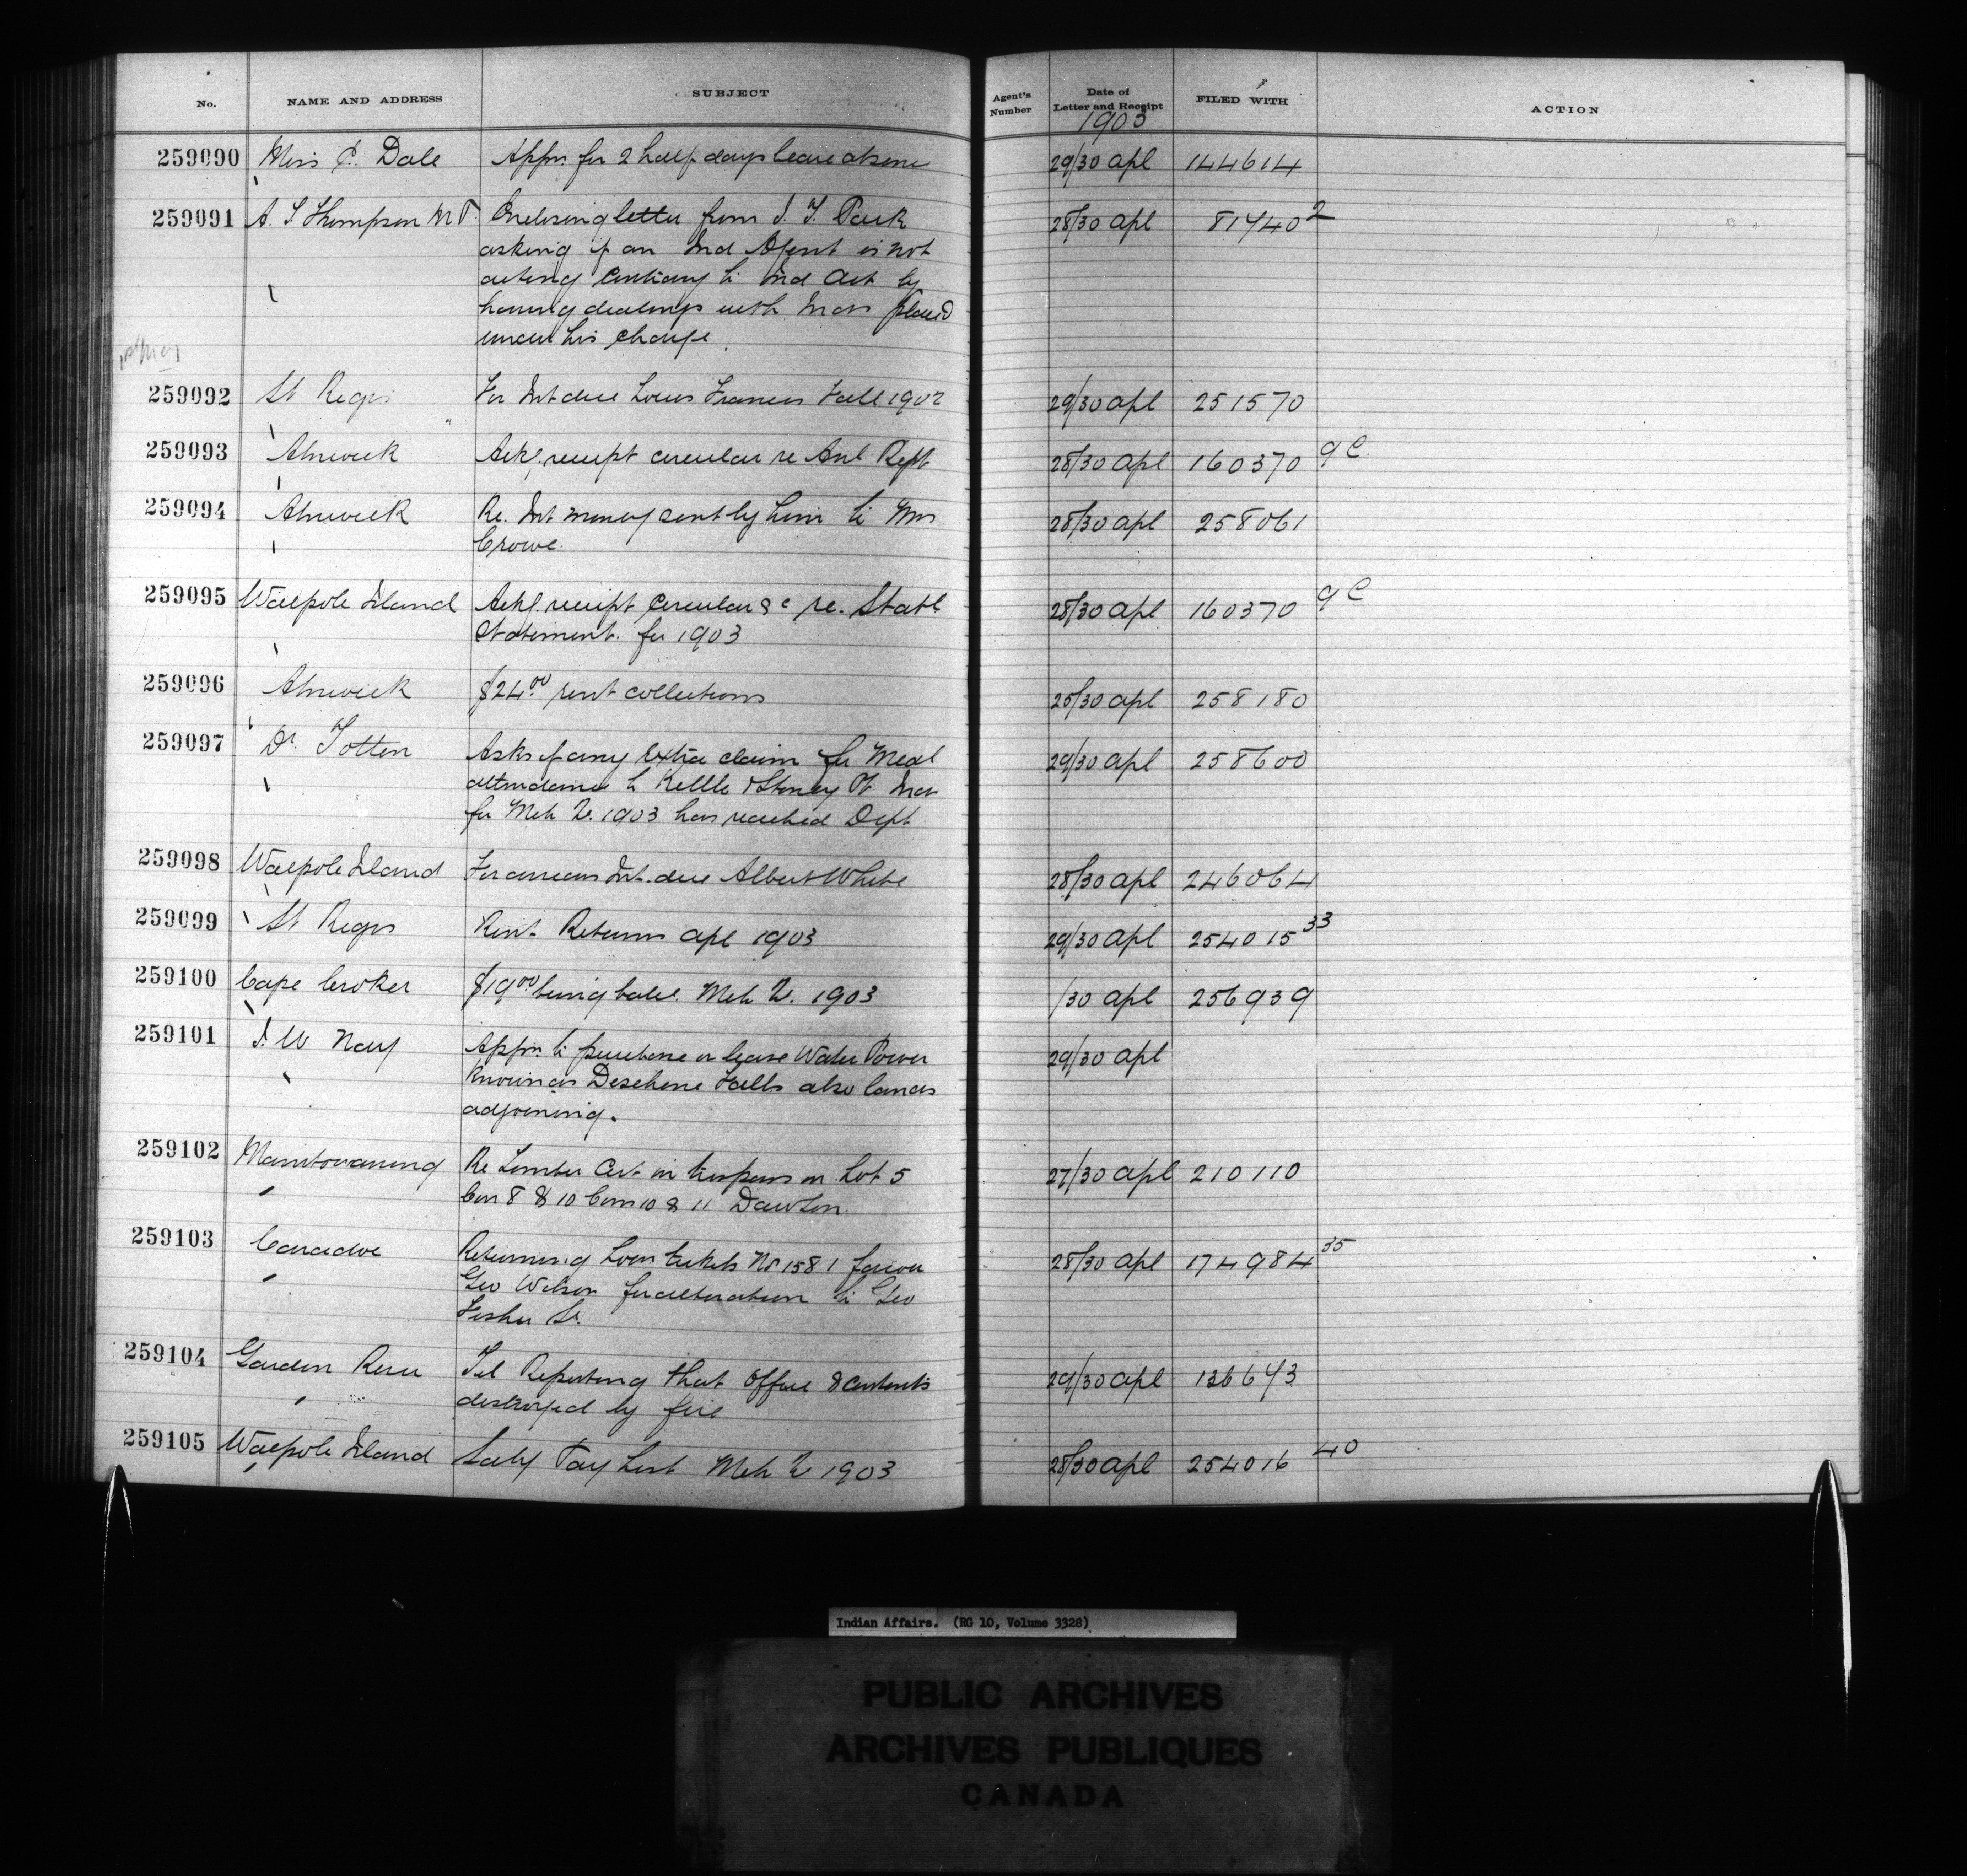 No. NAME AND ADDRESS SUBJECT Agent's Number Date of Letter and Receipt FILED WITH ACTION
1903
259090 Miss C. Dale Appn for 2 half days leave absence 29/30 apl 144614
259091 A. S Thompson M P. Enclosing letter from J. T. Park 28/30 apl 81740 2
asking if an Ind Agent is not
acting contrary to Ind Act by
having dealings with Inds placed
under his charge.
259092 St Regis For Int due Louis Francis Fall 1902 29/30 apl 251570
259093 Alnwick Ackg. receipt circular re Anl Rept 28/30 apl 160370 9 C.
259094 Alnwick Re. Int money sent by him to Mrs 28/30 apl 258061
Crowe.
259095 Walpole Island Ackg. receipt circular &c re. Statl 28/30 apl 160370 9 C
Statement. for 1903
259096 Alnwick $24.00 rent collections 28/30 apl 258180
259097 Dr. Totten Asks if any extra claim for Medl 29/30 apl 258600
attendance to Kettle & Stoney Pt Inds
for Mch Qr. 1903 has reached Dept
259098 Walpole Island For arrears Int. due Albert White 28/30 apl 246064
259099 St Regis Rent Returns apl 1903 29/30 apl 254015 33
259100 Cape Croker $19.00 being bal Mch Qr. 1903 /30 apl 256939
259101 J. W Nay Appn. to purchase or lease Water Power 29/30 apl
known as Deschene Falls also lands
adjoining.
259102 Manitowaning Re Timber Cut in trespass on Lot 5 27/30 apl 210110
Con 8 & 10 Con 10 & 11 Dawson.
259103 Caradoc Returning Loan tickets No 1581 favour 28/30 apl 174984 35
Geo Wilson for alteration to Geo
Fisher Sr.
259104 Garden River Tel Reporting that office & contents 29/30 apl 136643
destroyed by fire
259105 Walpole Island Saly Pay List Mch Qr 1903 28/30 apl 254016 40
Indian Affairs. (RG 10, Volume 3328)
PUBLIC ARCHIVES
ARCHIVES PUBLIQUES
CANADA